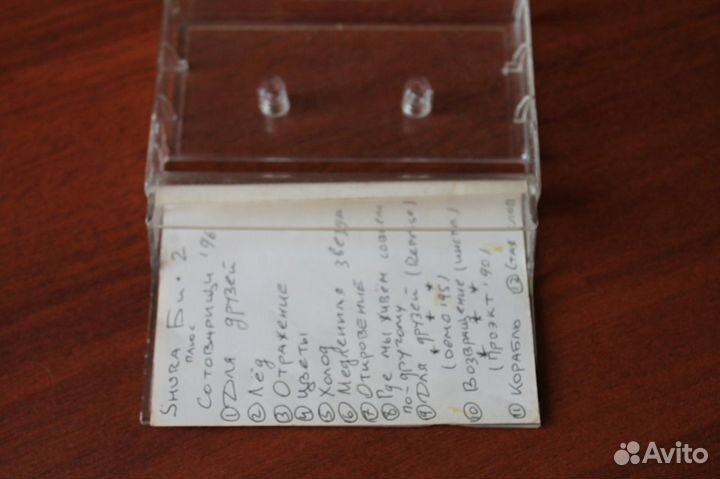 SHURA БИ•2
плюс
СОТОВАРИЩИ '96
① Для друзей
② Лёд
③ Отражение
④ Цветы
⑤ Холод
⑥ Медленная звезда
⑦ Откровение
⑧ Где мы живём
по-другому
⑨ Для друзей (Reprise)
* * *
(демо '95)
⑩ Возвращение
* * *
(Проэкт '90)
⑪ Корабло ⑫
Avito